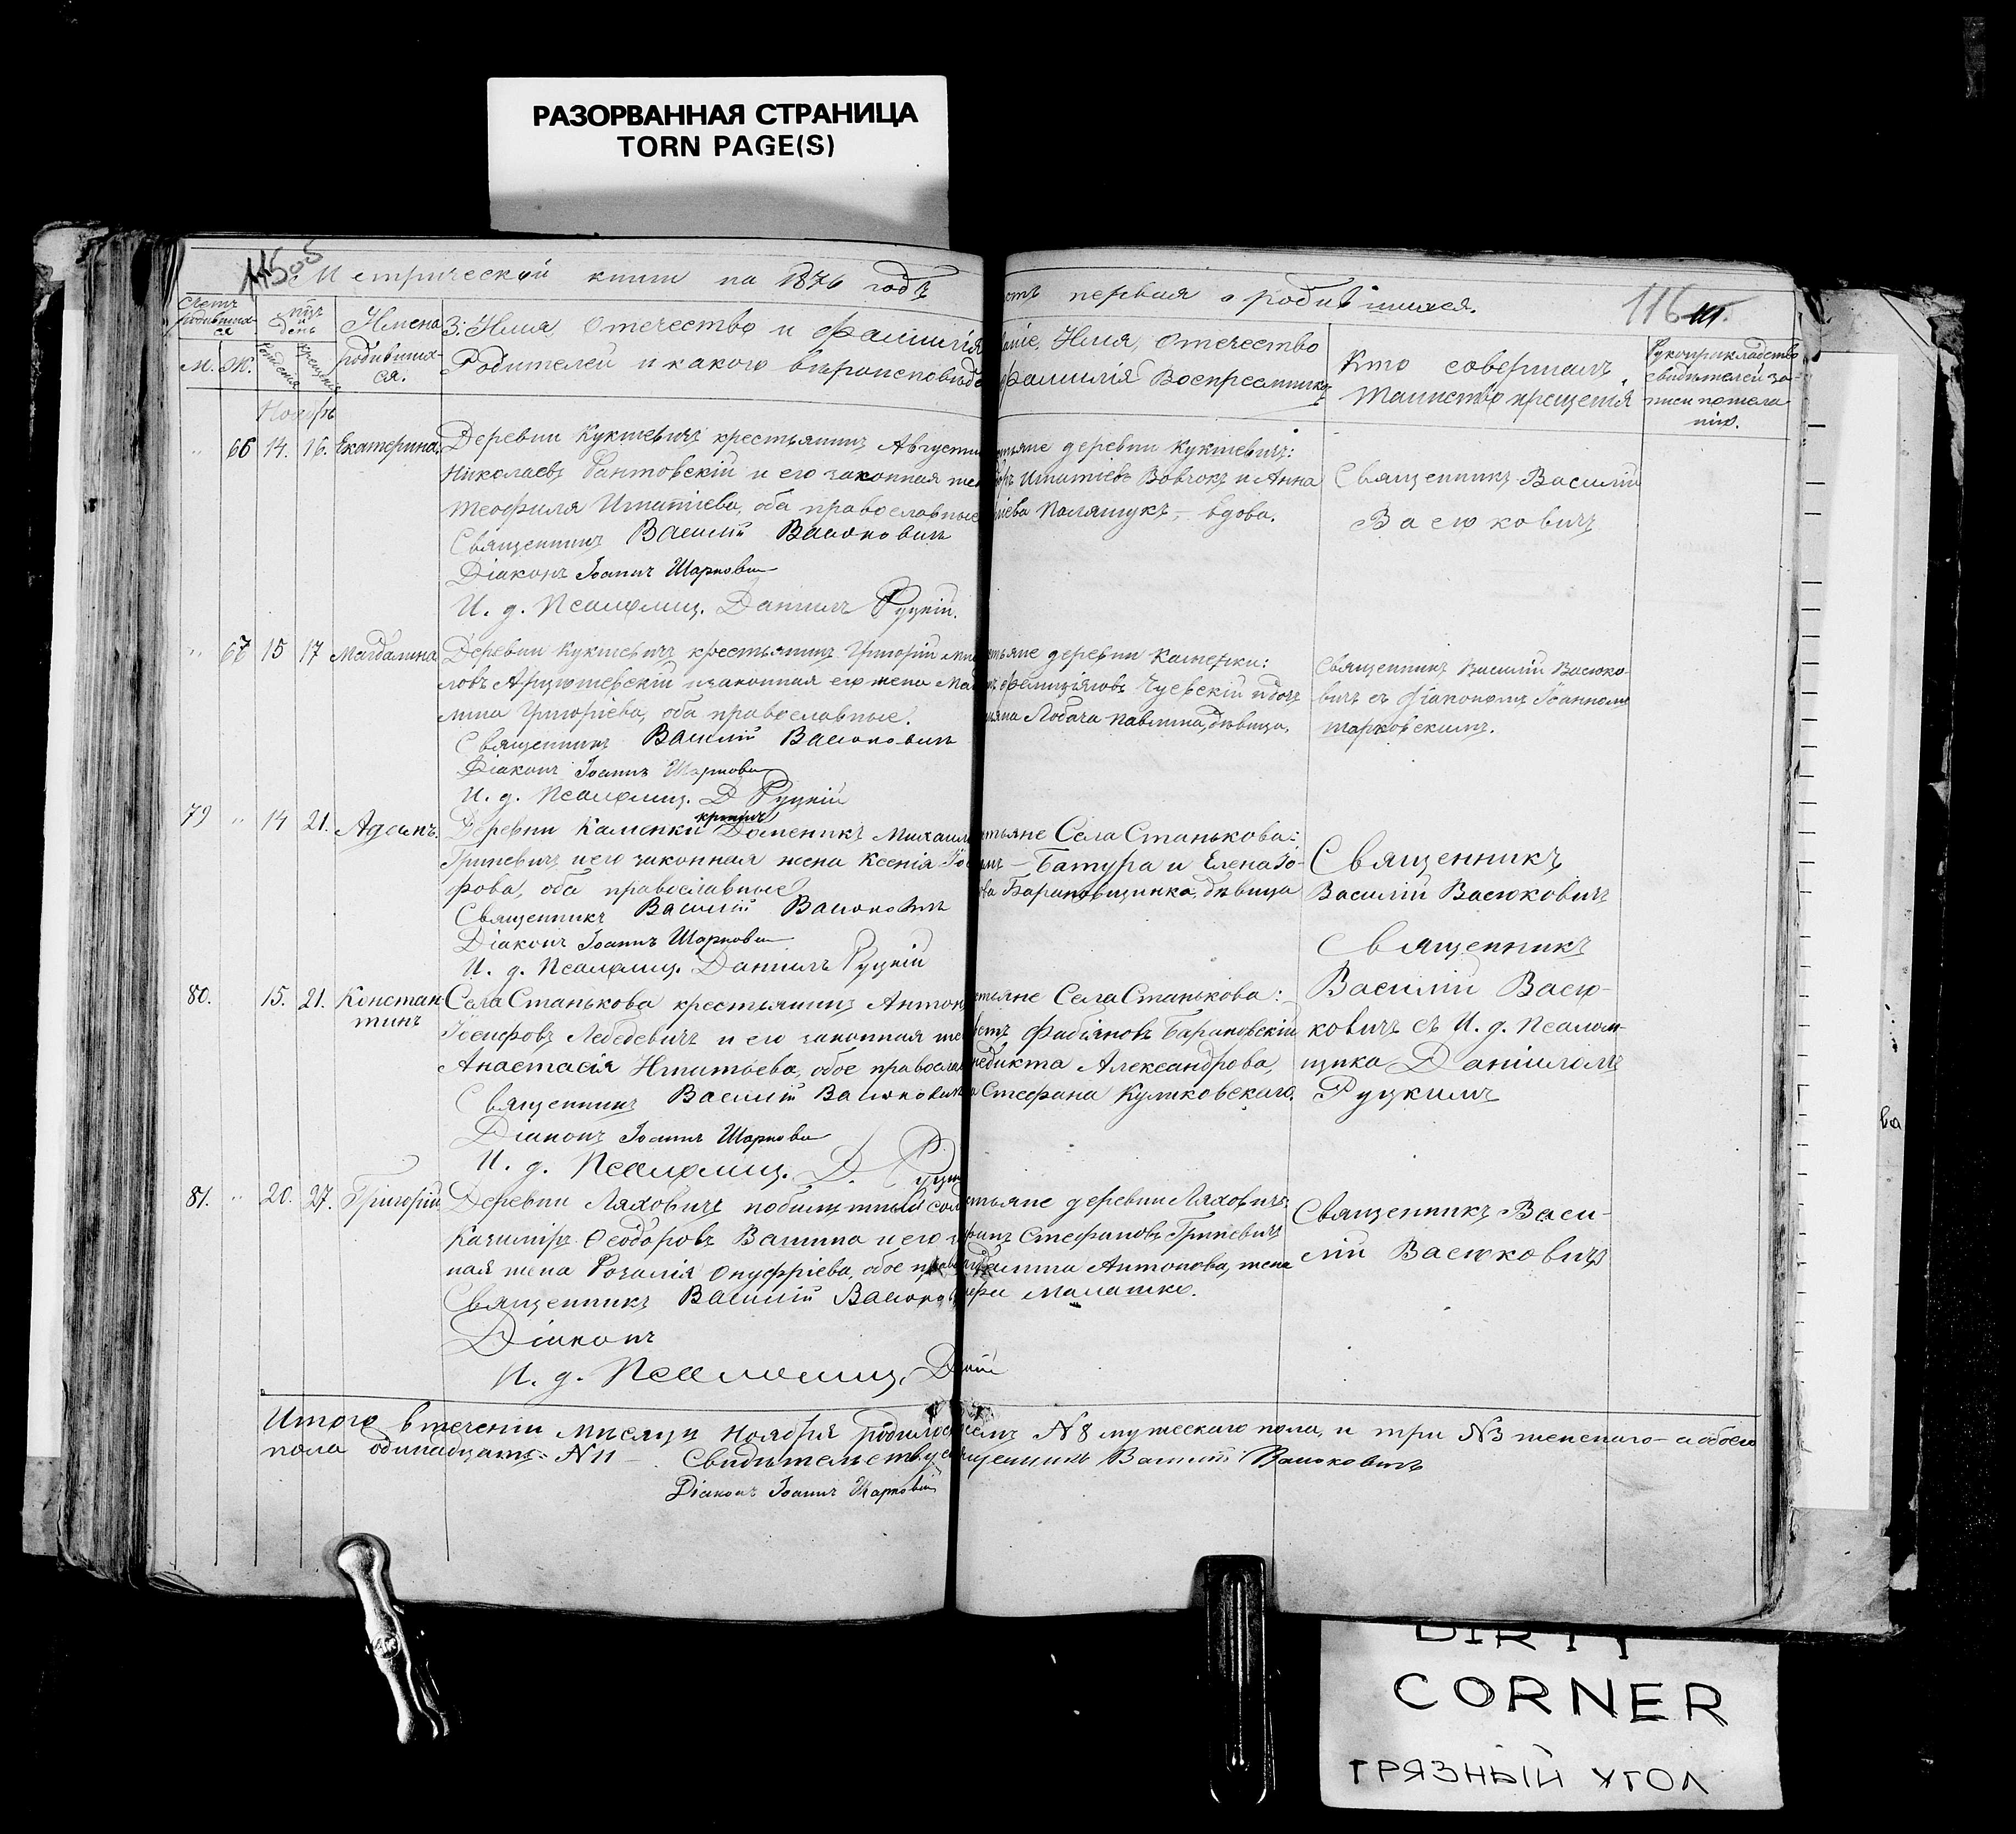 РАЗОРВАННАЯ СТРАНИЦА
TORN PAGE(S)
Метрической книги на 1876 годъ
первая о родившихся.
116
Счетъ родившихся
М. Ж.
день
рожденія
крещенія
Имена родившихся.
З: Имя, Отечество и фамилія
Родителей и какого вѣроисповѣда
Имя, Отечество
фамилія Воспреемниковъ
Кто совершалъ
таинство крещенія
Рукоприкладство
свидѣтелей за-
писи
Ноябрь
66 14. 16. Екатерина
Деревни Кукшевичъ крестьянинъ Августи
Николаевъ Рантовскій и его законная же
Теофиля Игнатіева, оба православные
Священникъ Василій Васюковичъ
Діаконъ Іоаннъ Шарковск
И. д. Псаломщ. Даніилъ Руцкій.
тьяне деревни Кукшевичъ:
Игнатіевъ Вовчокъ и Анна
Паляшукъ, вдова.
Священникъ Василій
Васюковичъ
67 15 17 Магдалина
Деревни Кукшевичъ крестьянинъ Григорій Ми
ловъ и законная его жена Ма
лина Григорьева, оба православные.
Священникъ Василій Васюковичъ
Діаконъ Іоаннъ Шарковск
И. д. Псаломщ. Д Руцкій
тьяне деревни Каменки:
Чуевскій и дочь
Лобача Павлина, дѣвица.
Священникъ Василій Васюко-
вичъ съ діакономъ Іоанномъ
Шарковскимъ.
79 14 21. Адамъ.
Деревни Каменки Доменикъ Михаил
Гриневичъ и его законная жена Ксенія Іо
фова, оба православные
Священникъ Василій Васюковичъ
Діаконъ Іоаннъ Шарковск
И. д. Псаломщ. Даніилъ Руцкій
тьяне Села Станькова:
Батура и Елена Іо-
ва Барановщинка, дѣвица
Священникъ
Василій Васюковичъ
80. 15. 21. Констан-
тинъ
Села Станькова крестьянинъ Антон
Іосифовъ Лебедевичъ и его законная же
Анастасія Игнатьева, обое правосла
Священникъ Василій Васюковичъ
Діаконъ Іоаннъ Шарковск
И. д. Псаломщ. Д. Руц
тьяне Села Станькова:
Фабіяновъ Барановскій
недикта Александрова,
Стефана Куликовскаго.
Священникъ
Василій Васю-
ковичъ съ И. д. Псалом-
щика Даніиломъ
Руцкимъ
81. 20. 27. Григорій
Деревни Ляховичъ побилетный сол
Казиміръ Ѳеодоровъ и его
ная жена Розалія Онуфріева, обое право
Священникъ Василій Васюков
Діаконъ
И. д. Псаломщ. Д
тьяне деревни Ляховичъ
Стефановъ Гриневичъ
Антонова, жена
Малашко.
Священникъ Васи-
лій Васюковичъ
Итого въ теченіи мѣсяца Ноября родилось N 8 мужескаго пола, и три N3 женскаго - а обоего
пола одинадцать = N 11 - Свидѣтельству щенникъ Василій Васюковичъ
Діаконъ Іоаннъ Шарковскій
DIRTY
CORNER
ГРЯЗНЫЙ УГОЛ